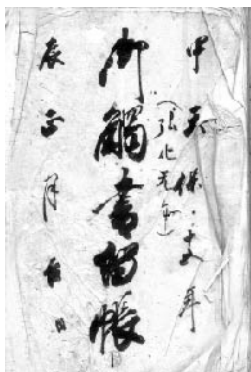 甲 天保十五年
(弘化元年)
御觸書留帳
辰正月吉日